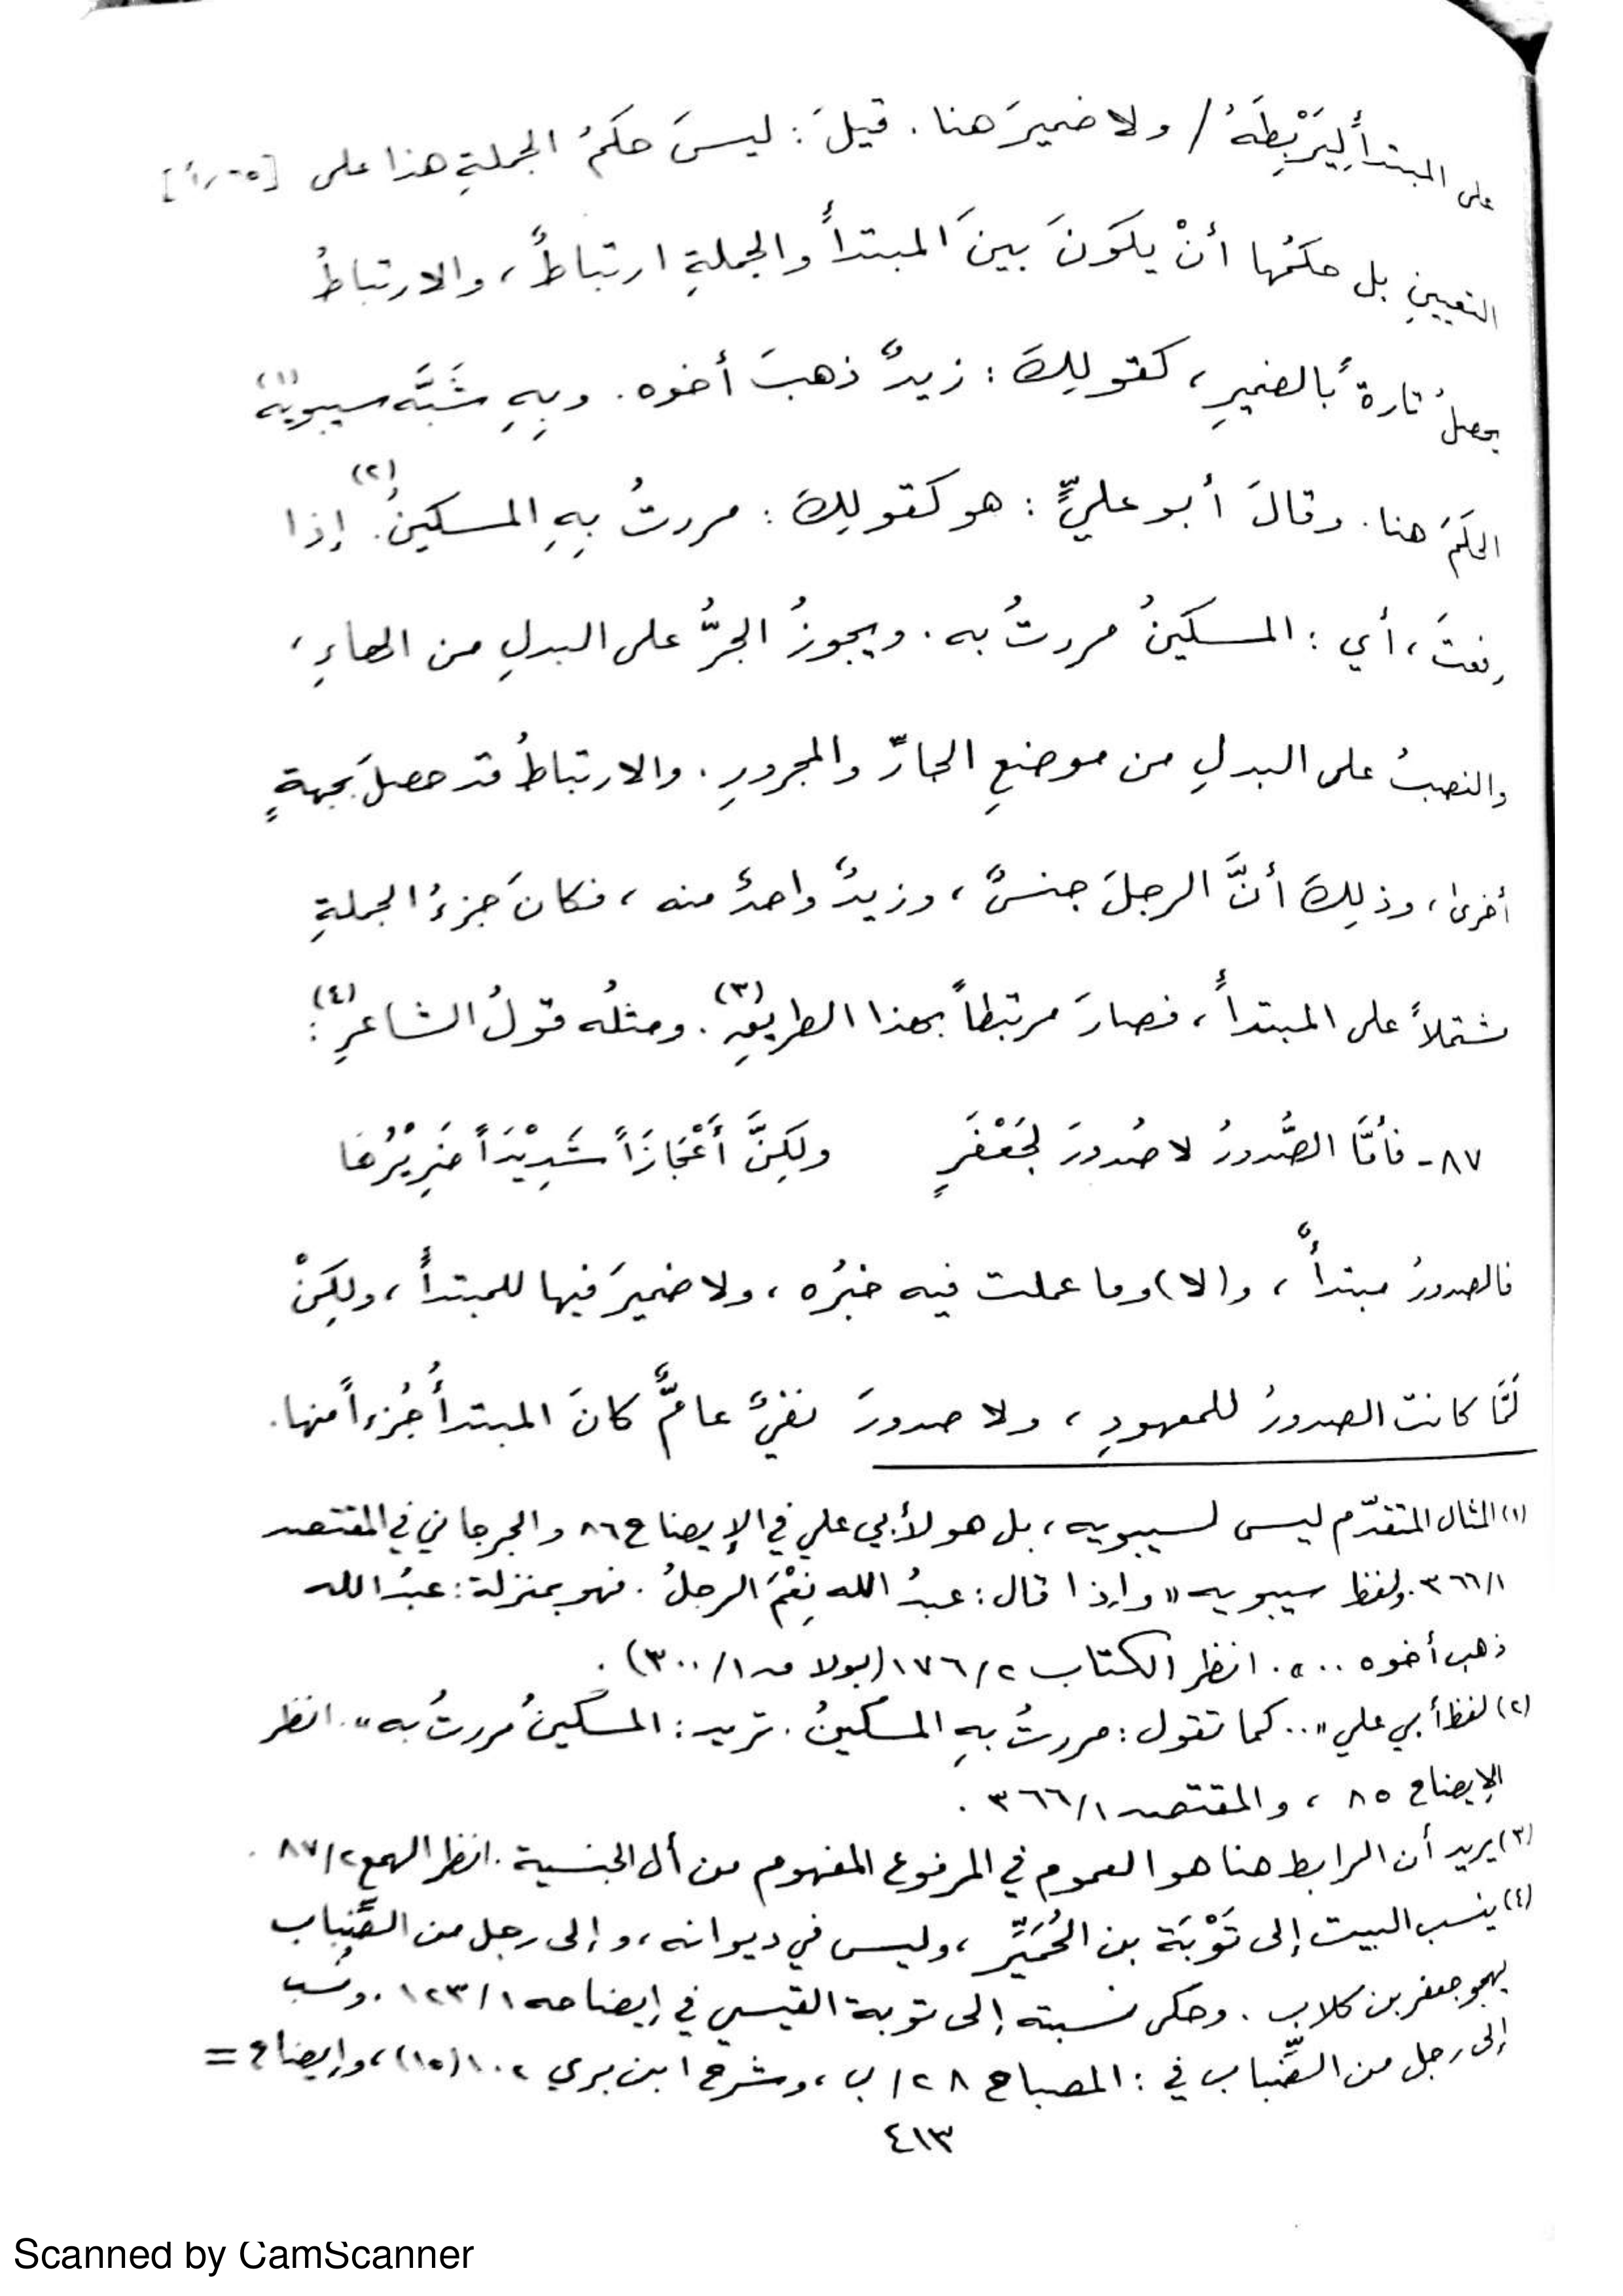 على المبتدأِ لِيَرْبِطَهُ / ولا ضميرَ هنا . قيلَ : ليسَ حكمُ الجملةِ هذا على
التعيينِ بل حكمُها أنْ يكونَ بينَ المبتدأِ والجملةِ ارتباطٌ ، والارتباطُ
يحصلُ تارةً بالضميرِ ، كقولِكَ : زيدٌ ذهبَ أخوه . وبِهِ شَبَّه سيبويهِ (١)
الحكمَ هنا . وقالَ أبو عليٍّ : هو كقولِكَ : مررتُ بِهِ المسكينُ (٢) . إذا
رفعتَ ، أي : المسكينُ مررتُ به . ويجوزُ الجرُّ على البدلِ من الهاءِ ،
والنصبُ على البدلِ من موضعِ الجارِّ والمجرورِ . والارتباطُ قد حصلَ بجهةٍ
أخرى ، وذلِكَ أنَّ الرجلَ جنسٌ ، وزيدٌ واحدٌ منه ، فكانَ جزءُ الجملةِ
مشتملاً على المبتدأِ ، فصارَ مرتبطاً بهذا الطريقِ (٣) . ومثلُه قولُ الشاعرِ (٤) :
٨٧ - فأمَّا الصُّدورُ لا صُدورَ لجَعْفَرٍ ولكِنَّ أَعْجَازَاً شَدِيْدَاً ضَرِيْرُها
فالصدورُ مبتدأٌ ، و(لا) وما عملت فيه خبرُه ، ولا ضميرَ فيها للمبتدأِ ، ولكِنْ
لَمَّا كانت الصدورُ للمعهودِ ، ولا صدورَ نفيٌ عامٌّ كانَ المبتدأُ جُزءاً منها .
(١) المثال المتقدّم ليس لسيبويه ، بل هو لأبي علي في الإيضاح ٨٦ والجرجاني في المقتصد
٣٦٦/١ . ولفظ سيبويه « وإذا قال : عبدُ الله نِعْمَ الرجلُ . فهو بمنزلة : عبدُ الله
ذهب أخوه .. » . انظر الكتاب ١٧٦/٢ (بولاق ٣٠٠/١) .
(٢) لفظ أبي علي « .. كما تقول : مررتُ بهِ المسكينُ . تريد : المسكينُ مررتُ به » . انظر
الإيضاح ٨٥ ، والمقتصد ٣٦٦/١ .
(٣) يريد أن الرابط هنا هو العموم في المرفوع المفهوم من أل الجنسية . انظر الهمع ٨٧/٢ .
(٤) ينسب البيت إلى تَوْبَة بن الحُمَيِّر ، وليس في ديوانه ، وإلى رجل من الضِّباب
يهجو جعفر بن كلاب . وحكى نسبته إلى توبة القيسي في إيضاحه ١٢٣/١ . ونسب
إلى رجل من الضِّباب في : المصباح ٢٨/ب ، وشرح ابن بري ١٠٢ (١٥) ، وإيضاح =
٤١٣
Scanned by CamScanner